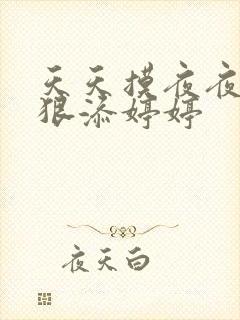 天天摸夜夜
狠添婷婷
夜天白